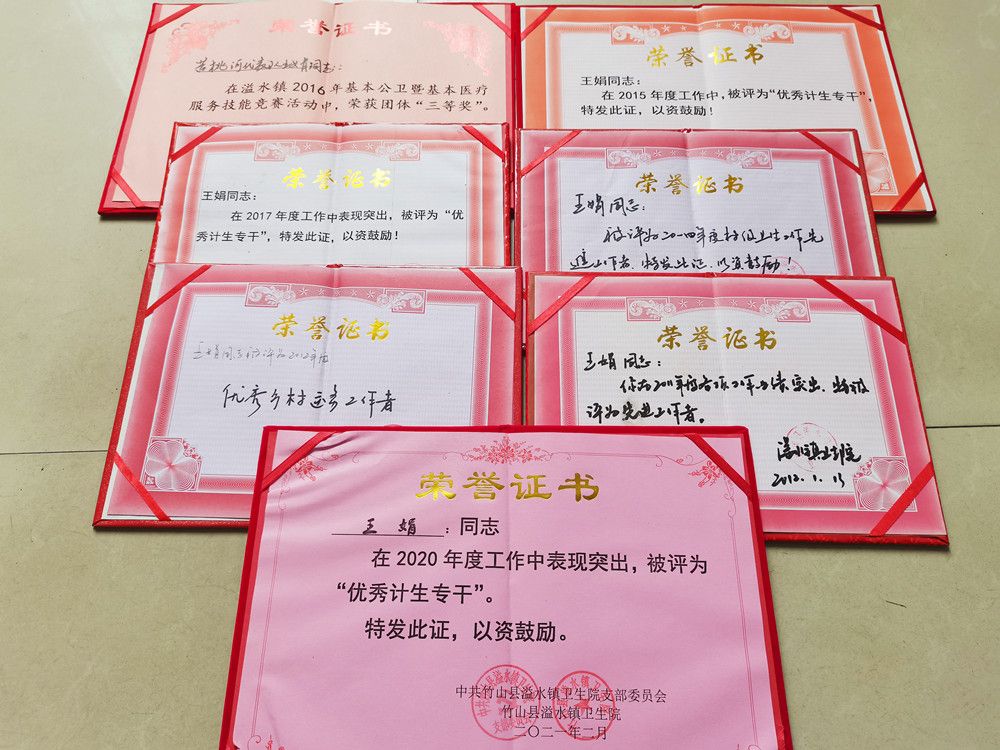 荣誉证书
苦桃河代表队王娟同志：
在溢水镇2016年基本公卫暨基本医疗
服务技能竞赛活动中，荣获团体“三等奖”。
荣誉证书
王娟同志：
在2015年度工作中，被评为“优秀计生专干”，
特发此证，以资鼓励！
荣誉证书
王娟同志：
在2017年度工作中表现突出，被评为“优
秀计生专干”，特发此证，以资鼓励！
荣誉证书
王娟同志：
被评为二〇一四年度村级卫生工作先
进工作者，特发此证，以资鼓励！
荣誉证书
王娟同志被评为2012年度
优秀乡村医务工作者
荣誉证书
王娟同志：
你在2011年度各项工作中成绩突出，特被
评为先进工作者。
溢水镇卫生院
2012.1.15
荣誉证书
王娟：同志
在2020年度工作中表现突出，被评为
“优秀计生专干”。
特发此证，以资鼓励。
中共竹山县溢水镇卫生院支部委员会
竹山县溢水镇卫生院
二〇二一年二月